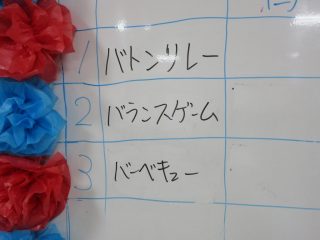 1 バトンリレー
2 バランスゲーム
3 バーベキュー